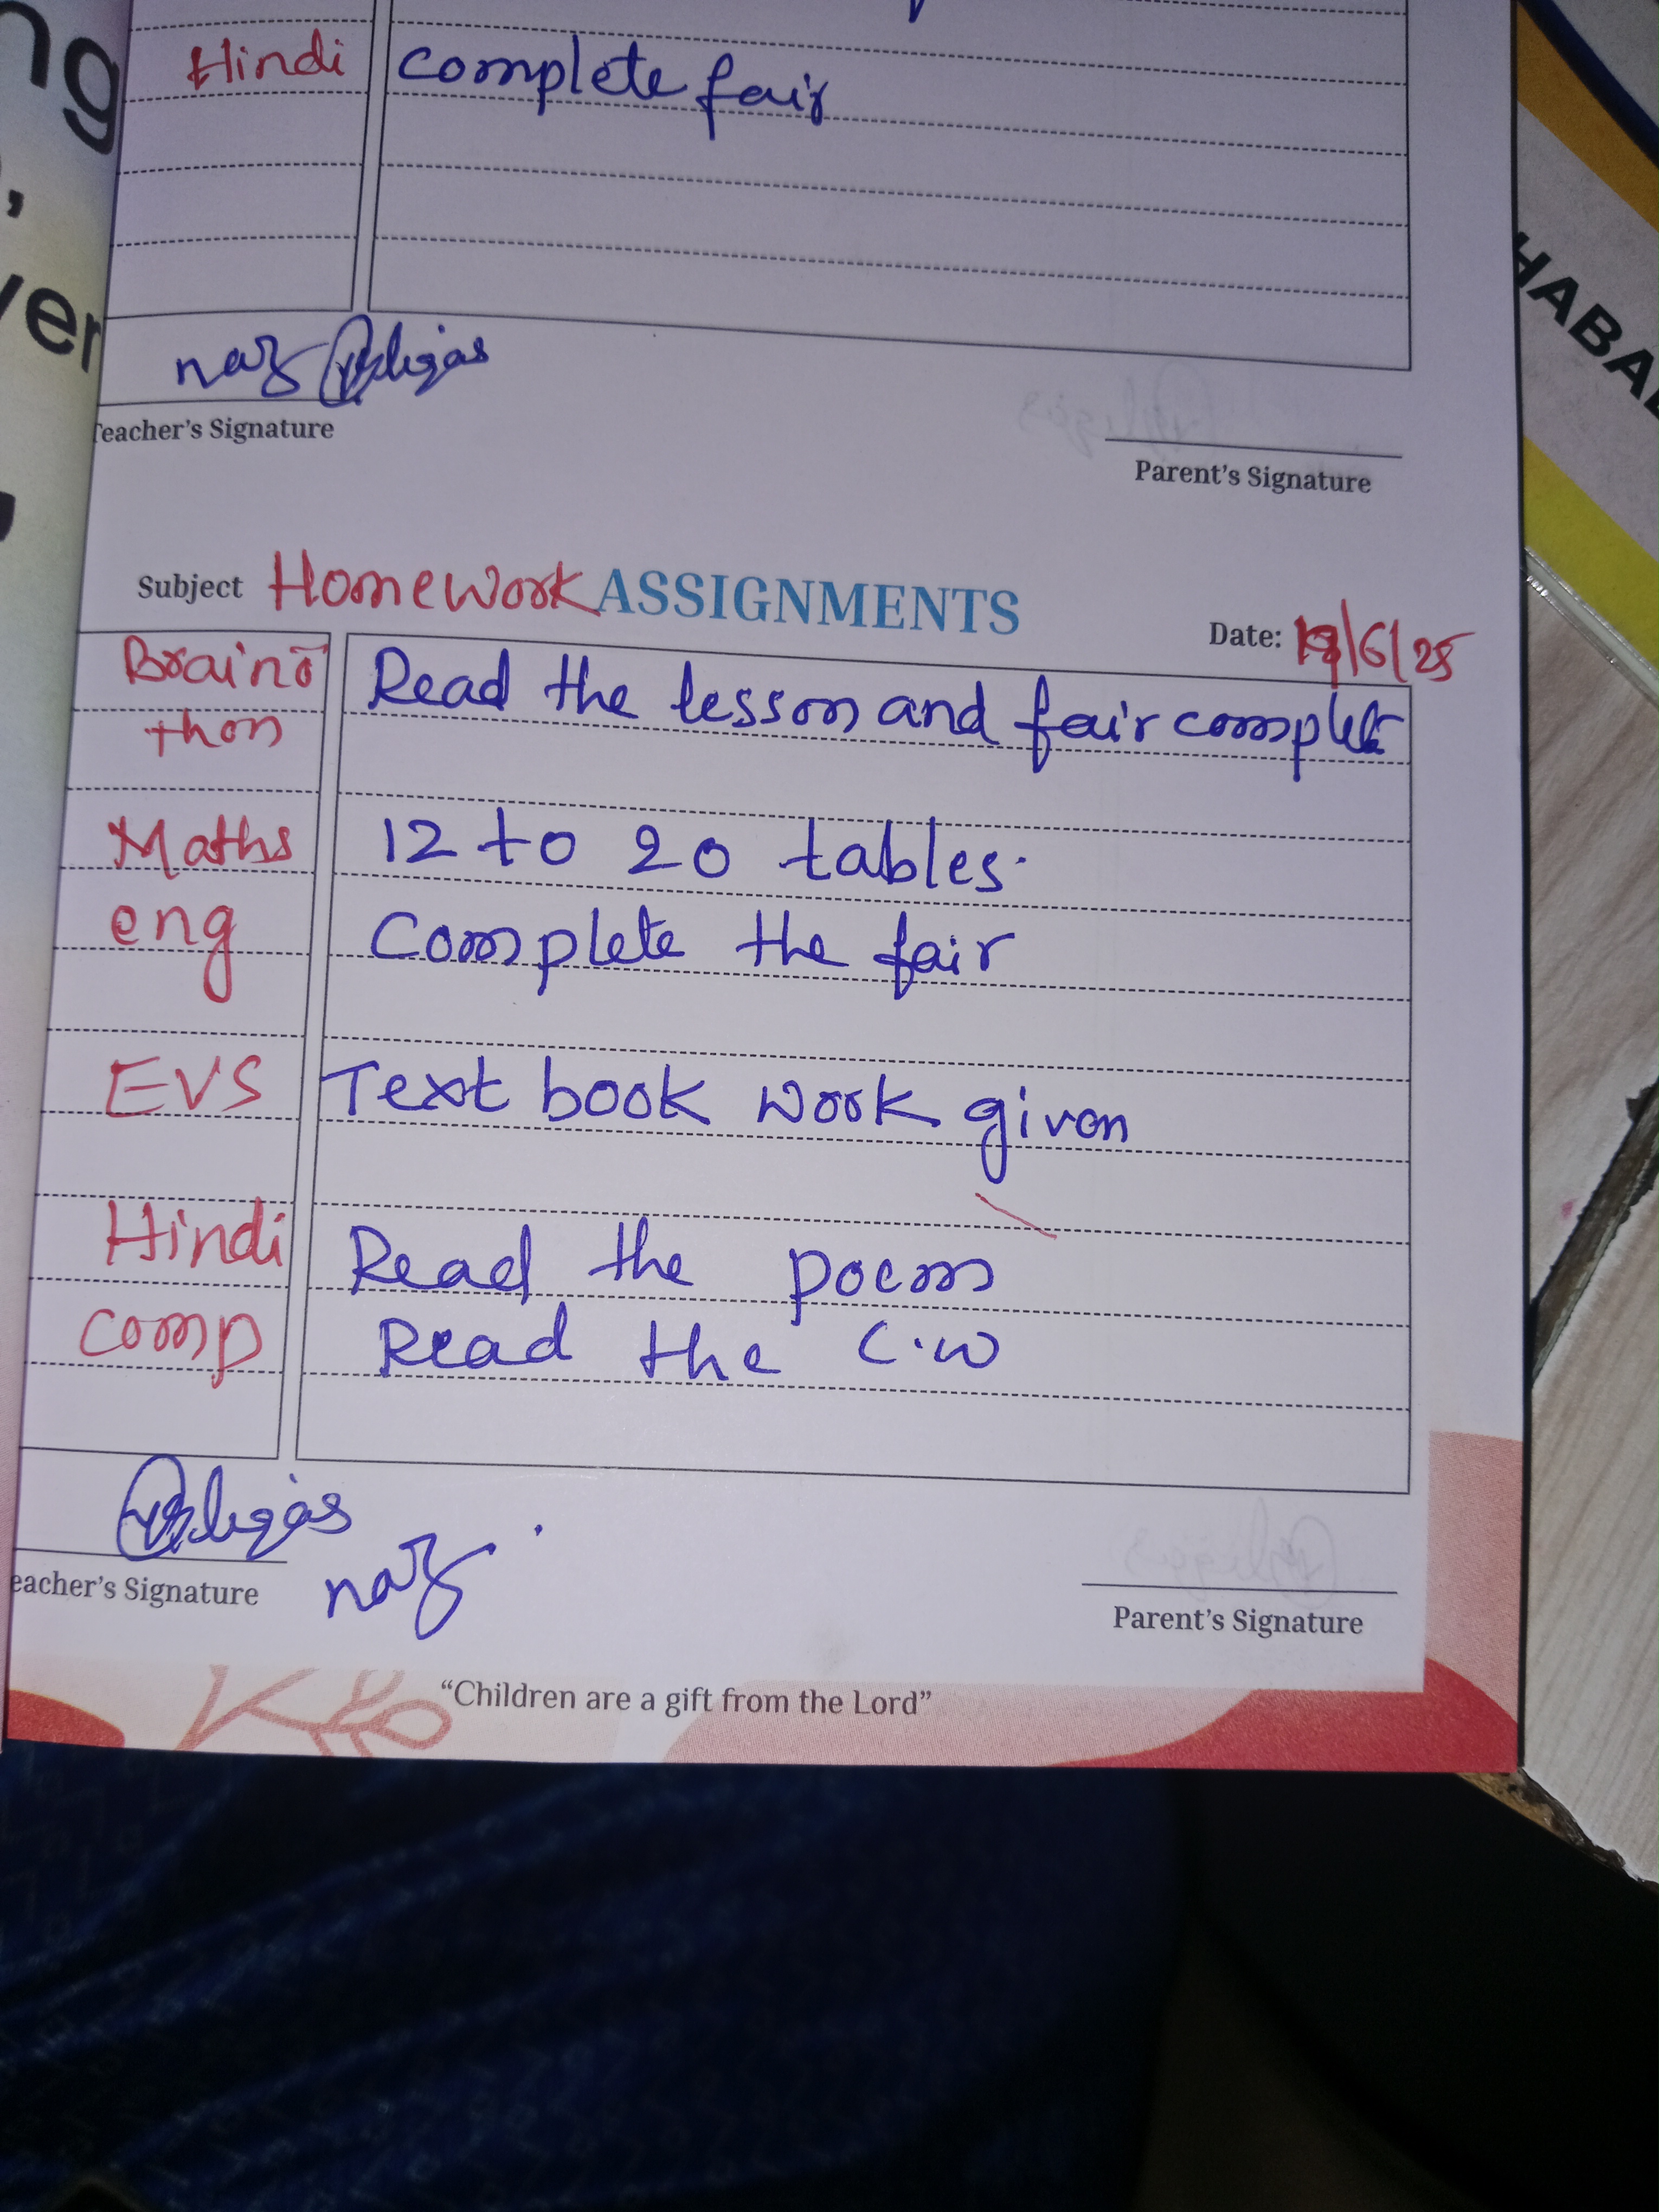 Hindi complete fair
naz
Teacher's Signature
Parent's Signature
Subject Homework ASSIGNMENTS
Date: /6/25
Braino Read the lesson and fair complet
thon
Maths 12 to 20 tables.
eng Complete the fair
EVS Text book work given
Hindi Read the poem
Comp Read the C.W
naz
eacher's Signature
Parent's Signature
"Children are a gift from the Lord"